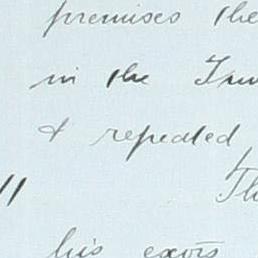 premises the
in the
& repeated
his exors